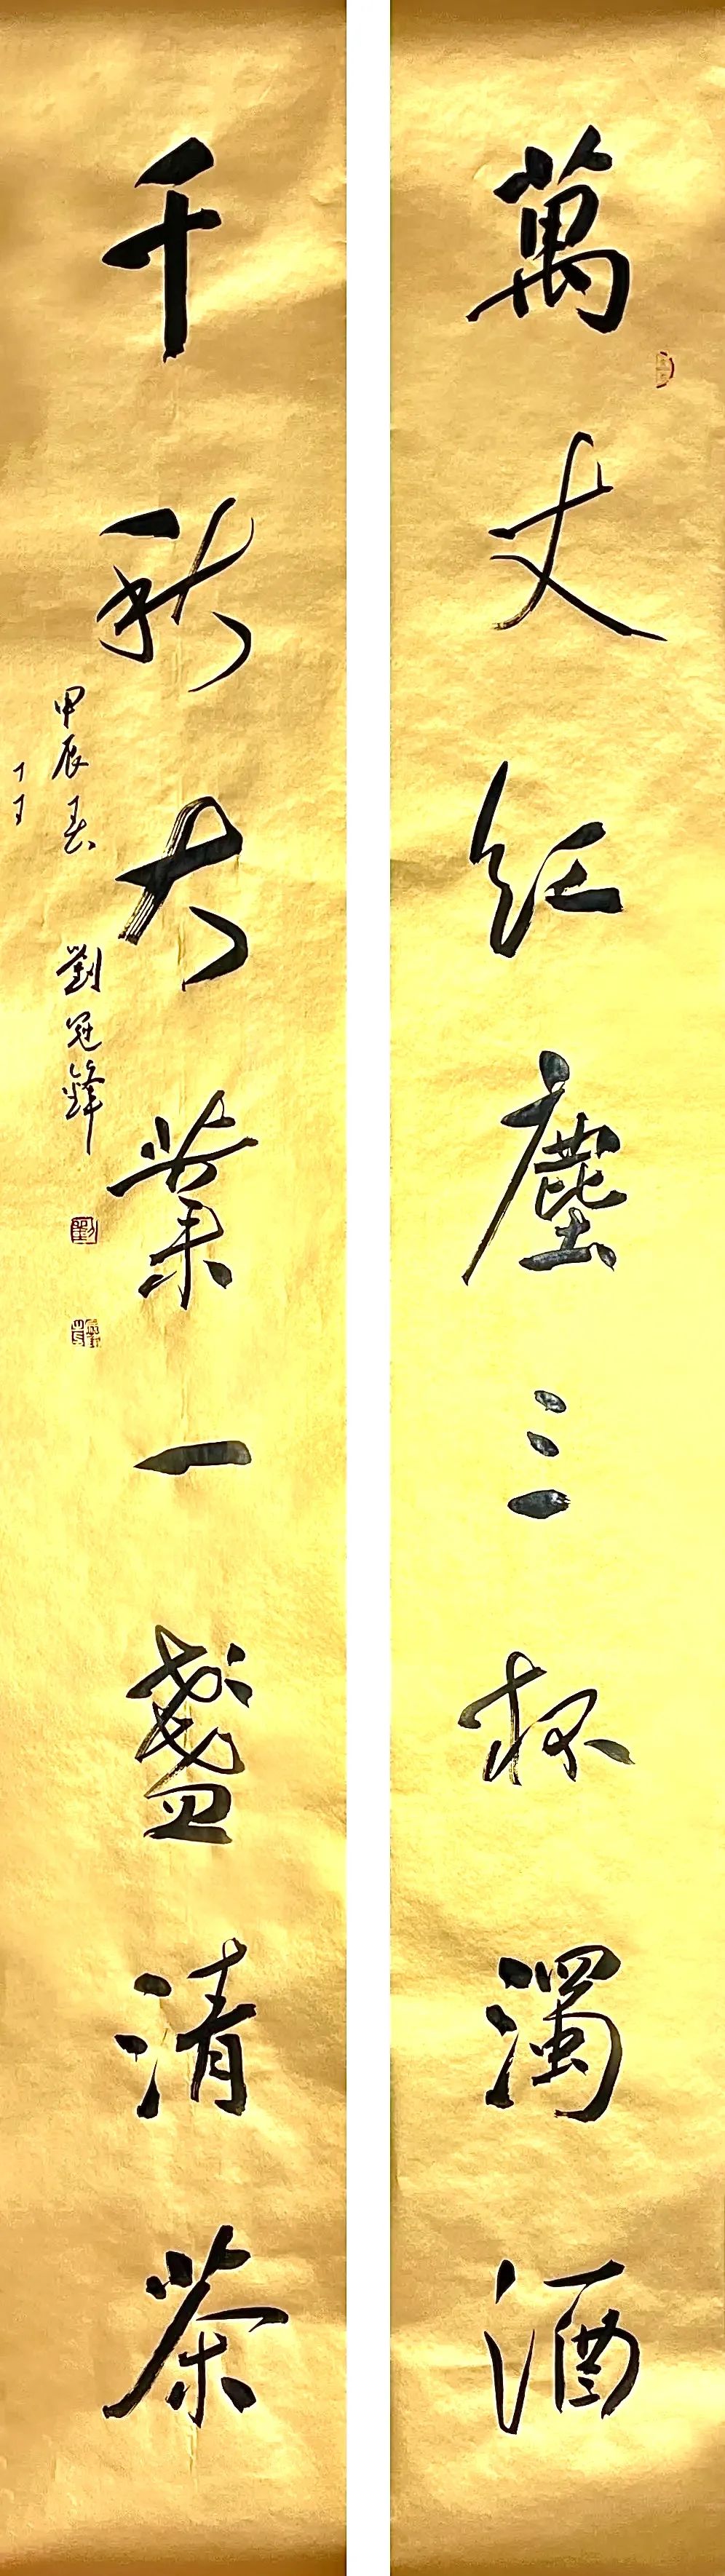 萬丈紅塵三杯濁酒
千秋大業一盞清茶
甲辰春
劉冠鋒